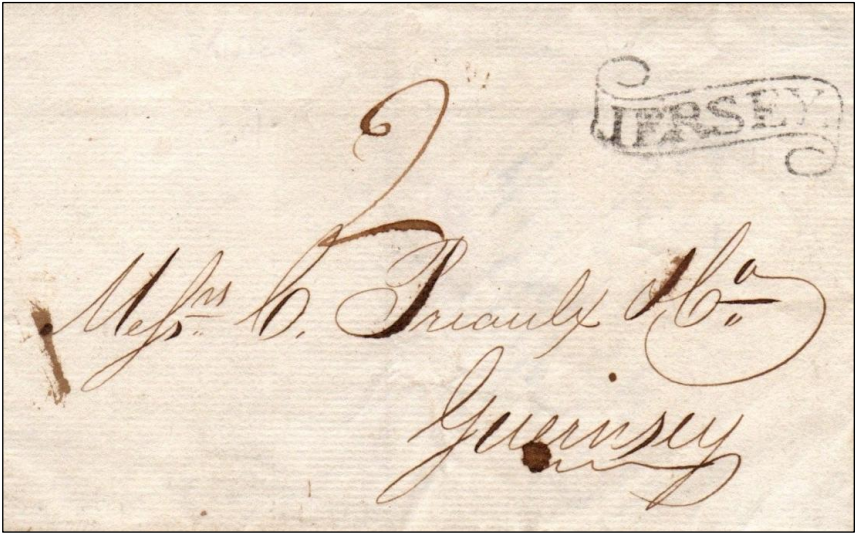 JERSEY
2
Messrs. C. Priaulx & Co.
Guernsey